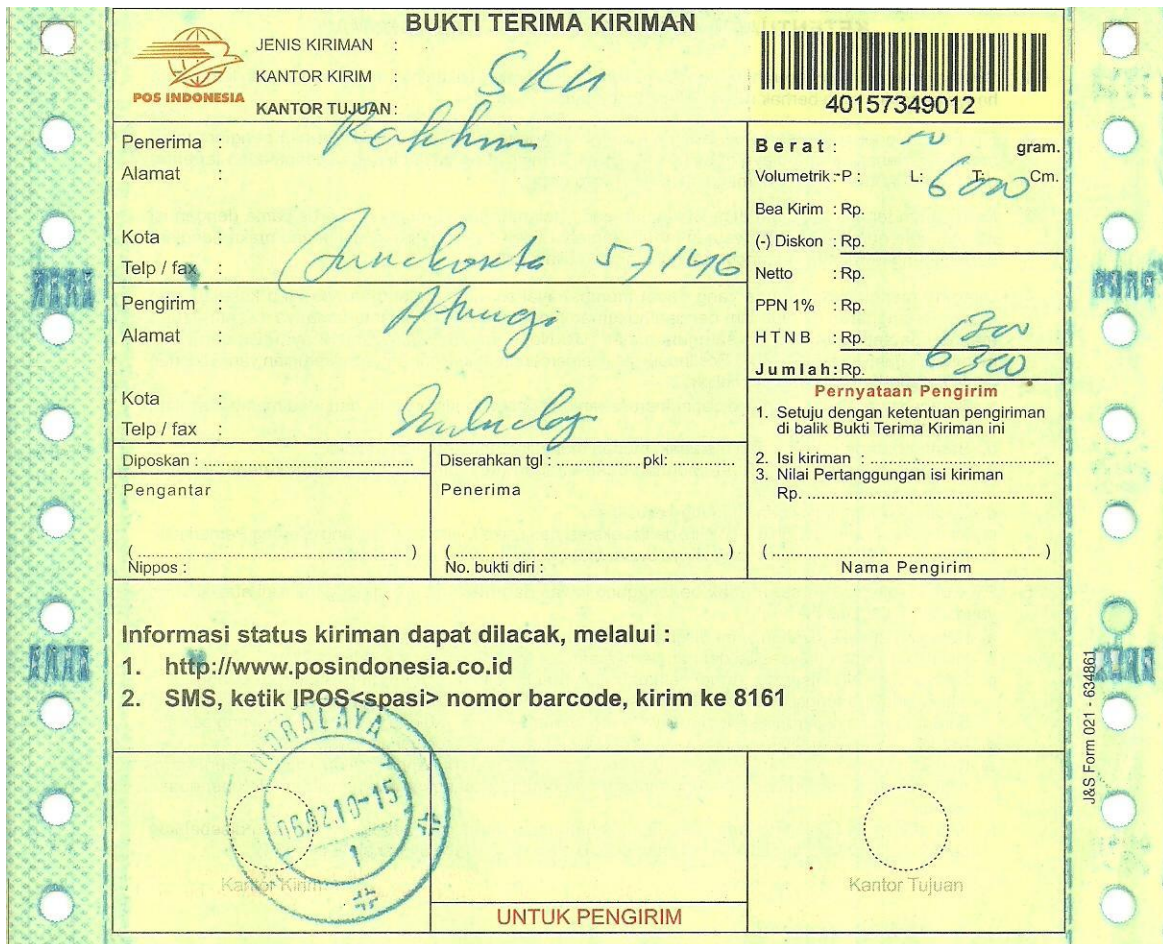 BUKTI TERIMA KIRIMAN
POS INDONESIA
JENIS KIRIMAN :
KANTOR KIRIM : SKH
KANTOR TUJUAN :
40157349012
Penerima :
Alamat :
Kota : 57146
Telp / fax :
Berat : 50 gram.
Volumetrik : P : L: T: Cm.
6000
Bea Kirim : Rp.
(-) Diskon : Rp.
Netto : Rp.
PPN 1% : Rp.
HTNB : Rp. 300
Jumlah: Rp. 6300
Pengirim :
Alamat :
Kota :
Telp / fax :
Pernyataan Pengirim
1. Setuju dengan ketentuan pengiriman
di balik Bukti Terima Kiriman ini
2. Isi kiriman : ........................
3. Nilai Pertanggungan isi kiriman
Rp. ........................
(........................)
Nama Pengirim
Diposkan : ........................
Pengantar
(........................)
Nippos :
Diserahkan tgl : ............ pkl: ............
Penerima
(........................)
No. bukti diri :
Informasi status kiriman dapat dilacak, melalui :
1. http://www.posindonesia.co.id
2. SMS, ketik IPOS<spasi> nomor barcode, kirim ke 8161
INDRALAYA
06.02.10-15
1
Kantor Kirim
UNTUK PENGIRIM
Kantor Tujuan
J&S Form 021 - 634861